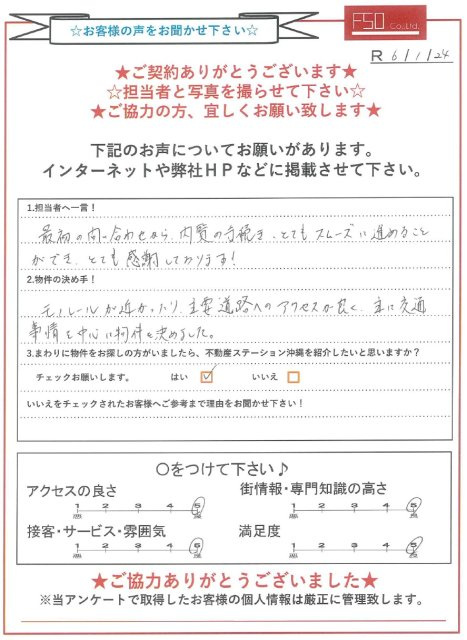 ☆お客様の声をお聞かせ下さい☆
FSO Co.,Ltd.
R 6/1/24
★ご契約ありがとうございます★
☆担当者と写真を撮らせて下さい☆
★ご協力の方、宜しくお願い致します★
下記のお声についてお願いがあります。
インターネットや弊社HPなどに掲載させて下さい。
1.担当者へ一言！
最初の問い合わせから、内覧の手続き、とてもスムーズに進めること
ができ、とても感謝しております！
2.物件の決め手！
モノレールが近かったり、主要道路へのアクセスが良く、主に交通
事情を中心に物件を決めました。
3.まわりに物件をお探しの方がいましたら、不動産ステーション沖縄を紹介したいと思いますか？
チェックお願いします。 はい ☑ いいえ □
いいえをチェックされたお客様へご参考まで理由をお聞かせ下さい！
○をつけて下さい♪
アクセスの良さ 街情報・専門知識の高さ
1 2 3 4 5 1 2 3 4 5
悪 良 悪 良
接客・サービス・雰囲気 満足度
1 2 3 4 5 1 2 3 4 5
悪 良 悪 良
★ご協力ありがとうございました★
※当アンケートで取得したお客様の個人情報は厳正に管理致します。